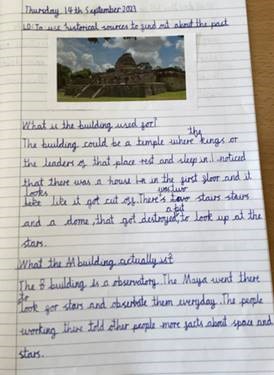 Thursday 14th September 2023
LO: To use historical sources to find out about the past
What is the building used for?
the
The building could be a temple where kings or
the leaders of that place rest and sleep in. I noticed
that there was a house in in the first floor and it
looks
like it got cut off. There's two stairs stairs
a bit
and a dome, that got destroyed, to look up at the
stars.
What the building actually is?
The building is a observatory. The Maya went there
to
look for stars and observate them everyday. The people
working there told other people more facts about space and
stars.